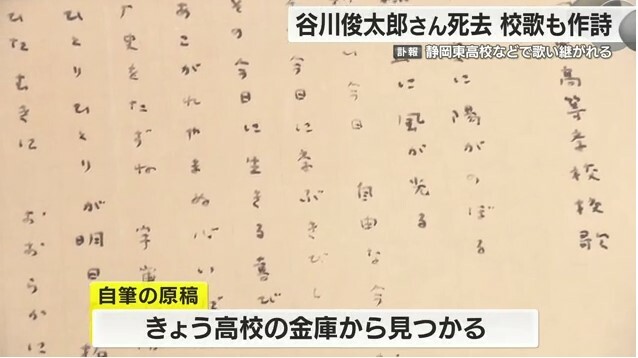 谷川俊太郎さん死去 校歌も作詩
訃報 静岡東高校などで歌い継がれる
高等学校校歌
に陽がのぼる
に風が光る
い今日 自由な今
今日に学ぶきびし
その今日に生きる喜び
あこがれやまぬ心
史をたずね 宇宙
ひとりひとりが明日
ひたむきに おおらかに
自筆の原稿
きょう高校の金庫から見つかる